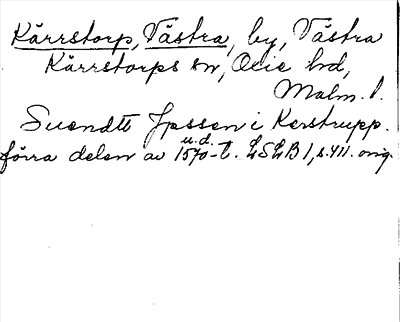 Kärrstorp, Västra, by, Västra
Kärrstorps sn, Oxie hd,
Malm. l.
Suendtt Jpssen i Kerstrupp.
u.d.
förra delen av 1570-t. LSLB 1, s. 411. orig.